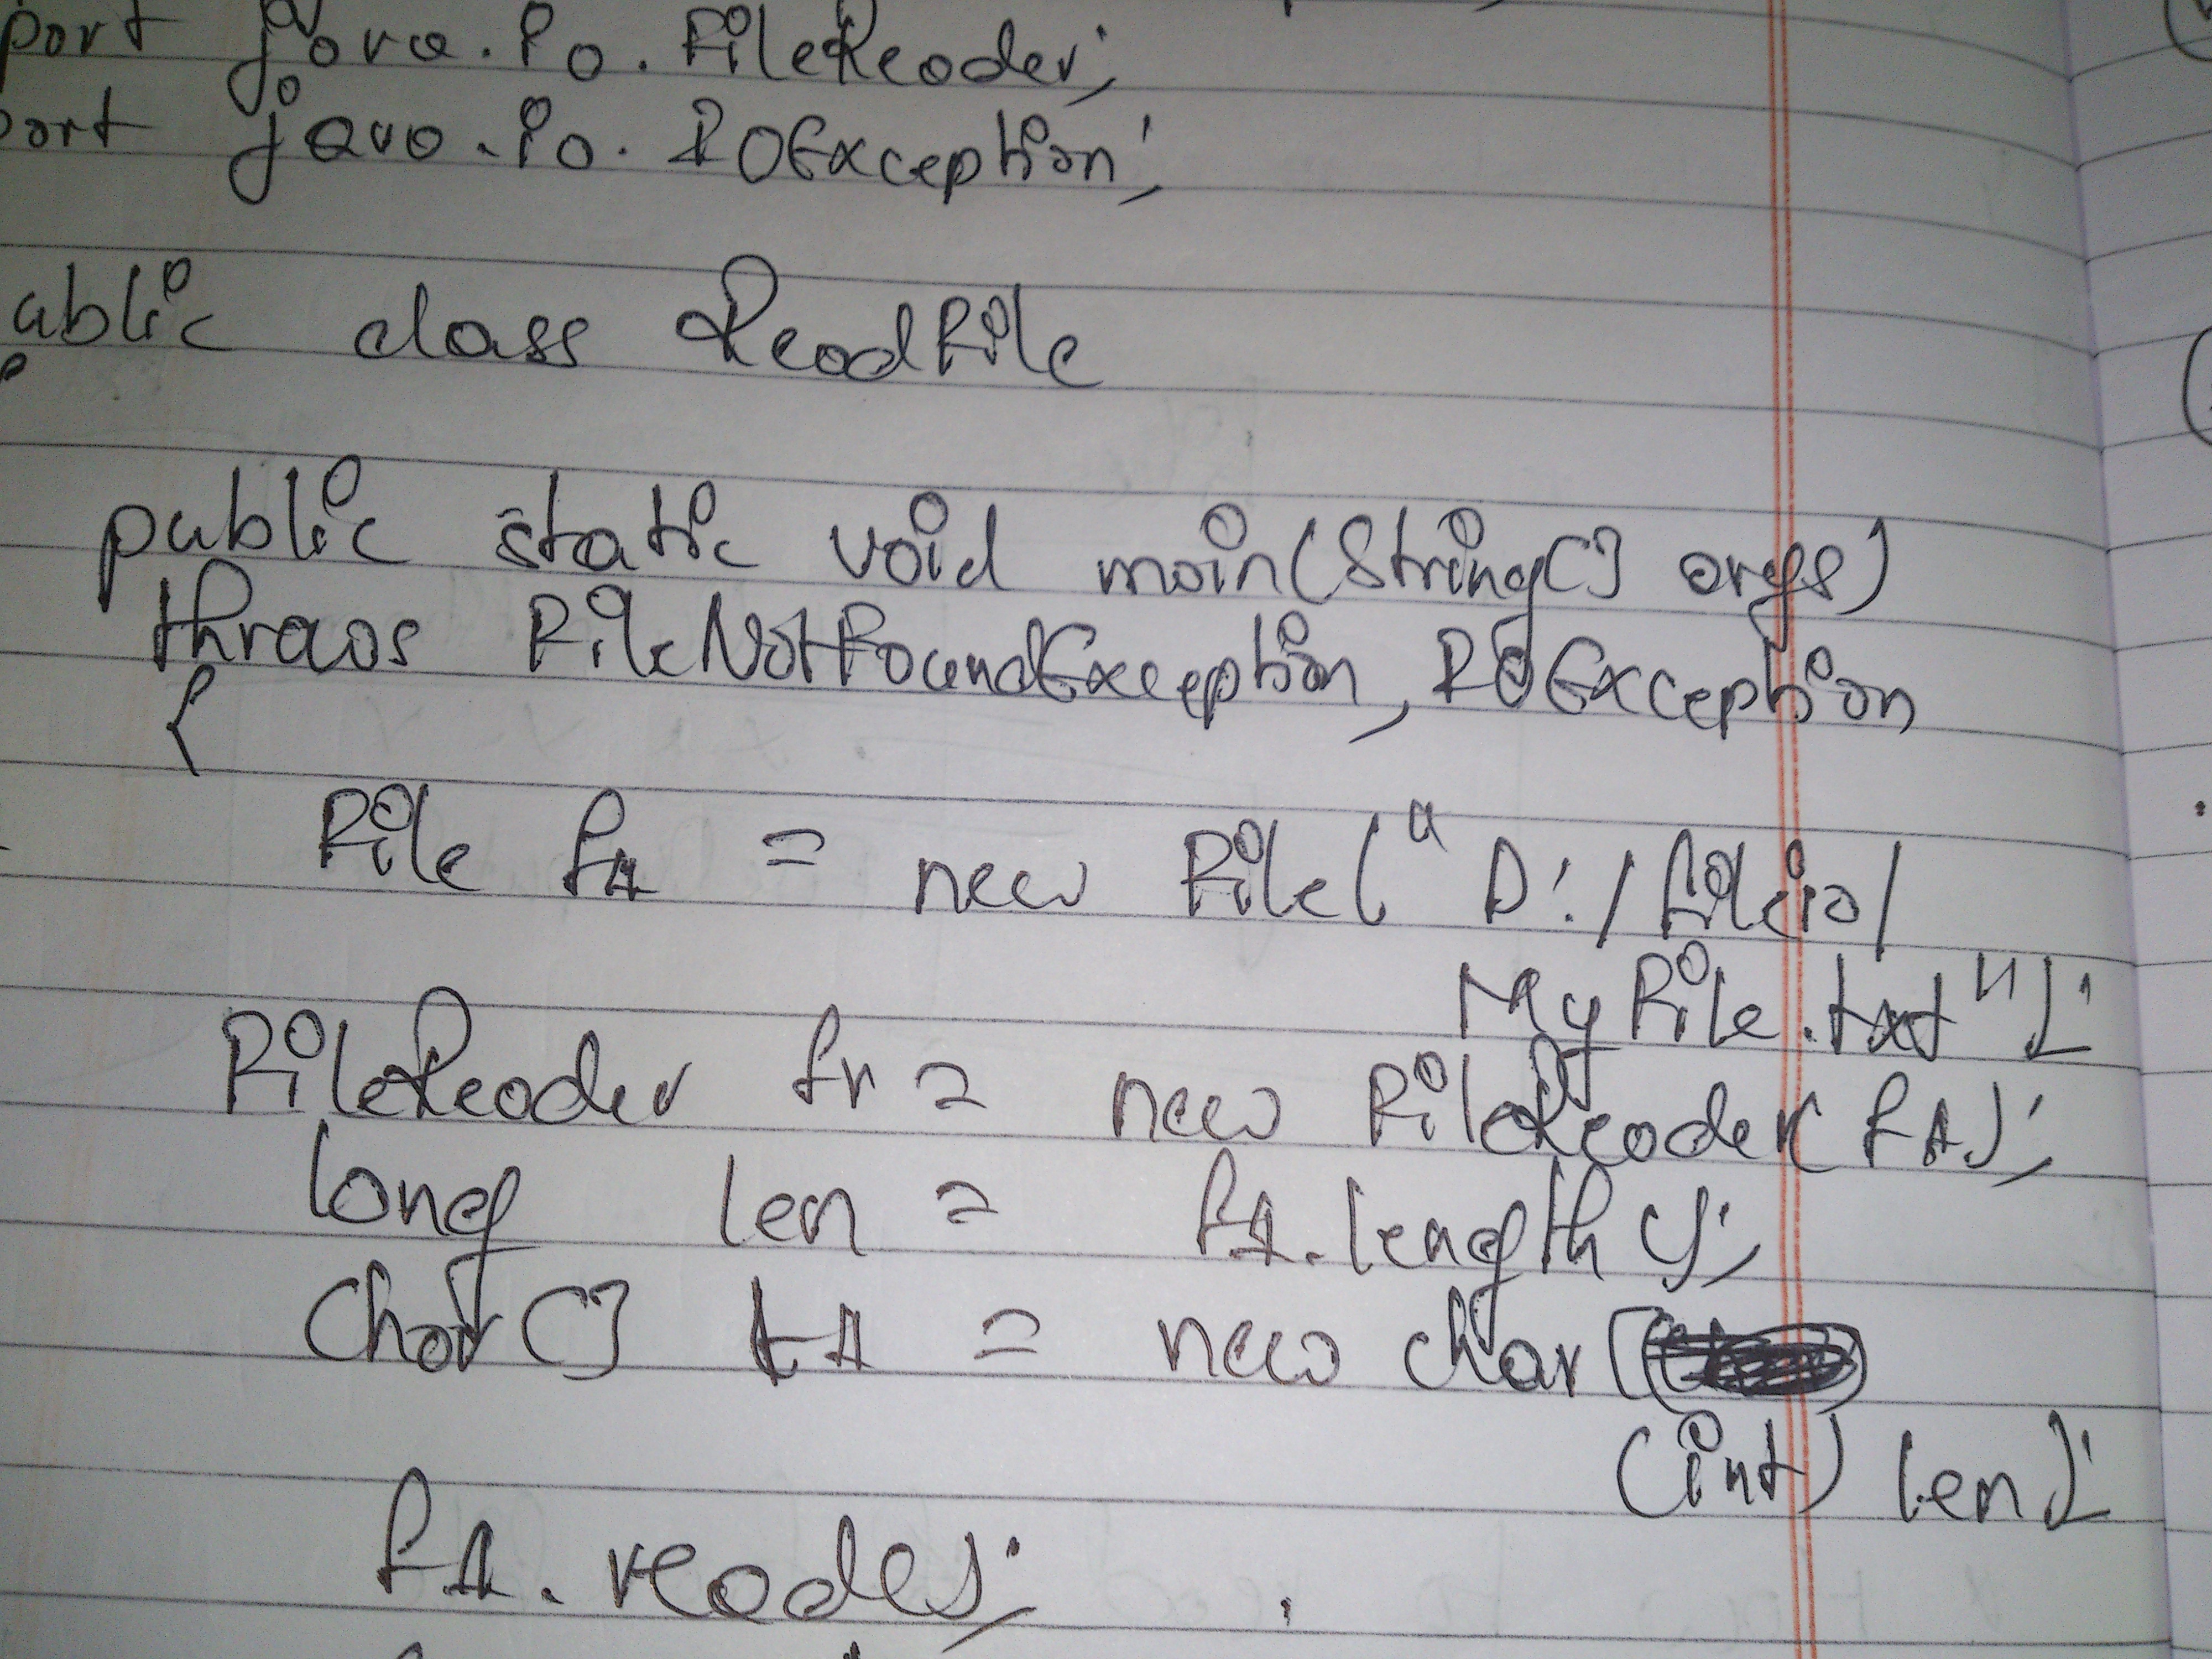 port java.io.FileReader;
port java.io.IOException;
ublic class ReadFile
public static void main(String[] args)
throws FileNotFoundException, IOException
{
File f1 = new File("D:/fileio/
MyFile.txt");
FileReader fr = new FileReader(f1);
long len = f1.length();
char[] t1 = new char[
(int) len];
f1.read();